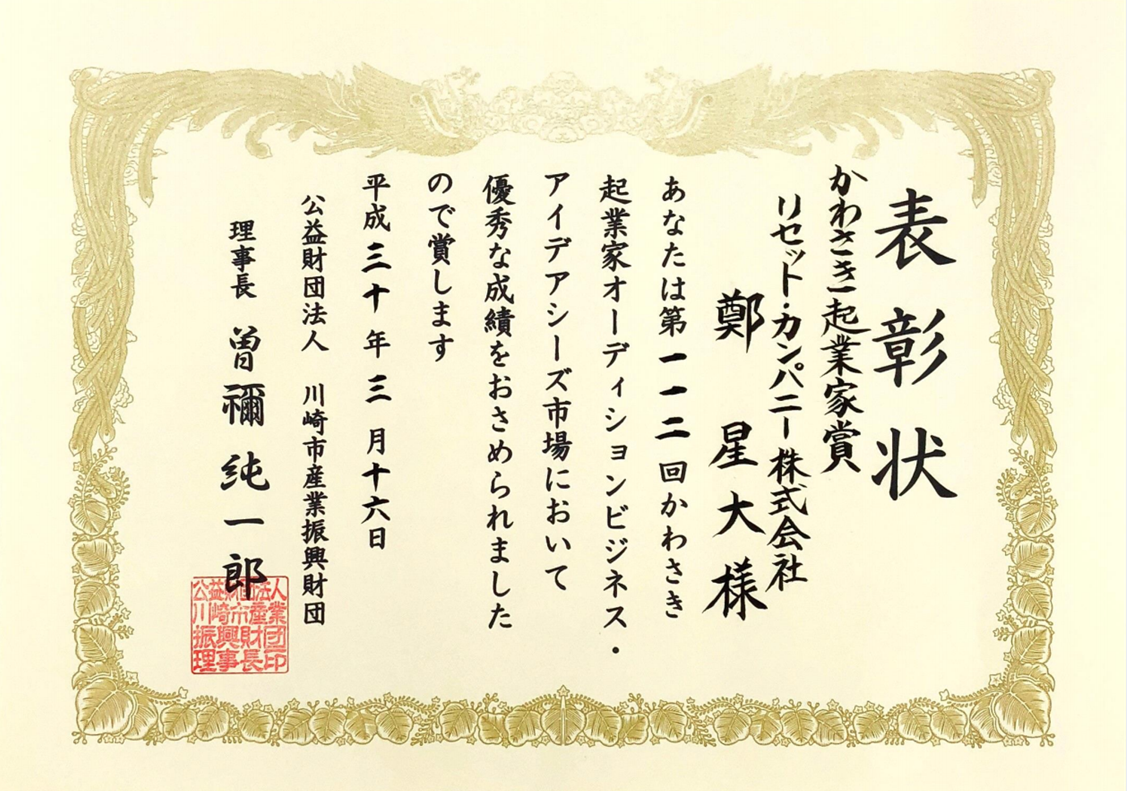 表彰状
かわさき起業家賞
リセット・カンパニー株式会社
鄭 星大様
あなたは第一一二回かわさき
起業家オーディションビジネス・
アイデアシーズ市場において
優秀な成績をおさめられました
ので賞します
平成三十年三月十六日
公益財団法人 川崎市産業振興財団
理事長 曽禰純一郎
公益財団法人
川崎市産業
振興財団
理事長印